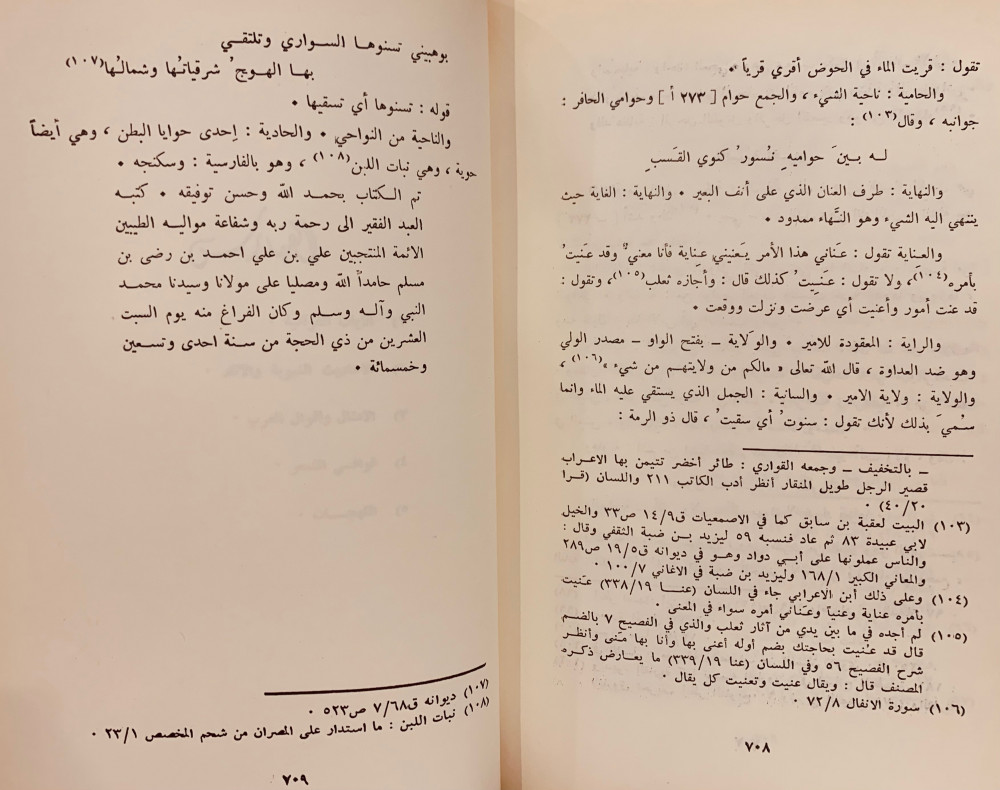 تقول : قريت الماء في الحوض أقري قرياً .
والحامية : ناحية الشيء ، والجمع حوام [ ٢٧٣ أ ] وحوامي الحافر :
جوانبه ، وقال(١٠٣) :
لـه بـيـنَ حواميهِ نُـسورٌ كنوى القَـسبِ
والنهاية : طرف العنان الذي على أنف البعير . والنهاية : الغاية حيث
ينتهي اليه الشيء وهو النَّهاء ممدود .
والعِناية تقول : عَناني هذا الأمر يَعنيني عِناية فأنا معنيٌّ وقد عنيتُ
بأمره(١٠٤)، ولا تقول : عَنَيتُ كذلك قال : وأجازه ثعلب(١٠٥)، وتقول :
قد عنت أمور وأعنيت أي عرضت ونزلت ووقعت .
والراية : المعقودة للامير . والوَلاية ــ بفتح الواو ــ مصدر الولي
وهو ضد العداوة ، قال الله تعالى « مالكم من ولايتهم من شيء »(١٠٦) ،
والولاية : ولاية الامير . والسانية : الجمل الذي يستقي عليه الماء وانما
سُمي بذلك لأنك تقول : سنوتُ أي سقيتُ ، قال ذو الرمة :
ــ بالتخفيف ــ وجمعه القواري : طائر أخضر تتيمن بها الاعراب
قصير الرجل طويل المنقار أنظر أدب الكاتب ٢١١ واللسان (قـرا
٤٠/٢٠) .
(١٠٣) البيت لعقبة بن سابق كما في الاصمعيات ق١٤/٩ ص٣٣ والخيل
لابي عبيدة ٨٣ ثم عاد فنسبه ٥٩ ليزيد بن ضبة الثقفي وقال :
والناس عملونها على أبـي دواد وهـو في ديوانه ق١٩/٥ ص٢٨٩
والمعاني الكبير ١٦٨/١ وليزيد بن ضبة في الاغاني ١٠٠/٧ .
(١٠٤) وعلى ذلك أبن الاعرابي جاء في اللسان (عنـا ٣٣٨/١٩) عَنيت
بأمره عناية وعنياً وعَناني أمره سواء في المعنى .
(١٠٥) لم أجده في ما بين يدي من آثار ثعلب والذي في الفصيح ٧ بالضم
قال قد عنيت بحاجتك بضم أوله أعنى بها وأنا بها مَعنى وأنظر
شرح الفصيح ٥٦ وفي اللسان (عنا ٣٣٩/١٩) ما يعـارض ذكـره
المصنف قال : ويقال عنيت وتعنيت كل يقال .
(١٠٦) سورة الانفال ٧٢/٨ .
٧٠٨
بوهبيني تسنوهـا السـواري وتلتقـي
بهـا الهـوجُ شرقياتُها وشمالُها(١٠٧)
قوله : تسنوها أي تسقيها .
والناحية من النواحي . والحادية : إحدى حوايا البطن ، وهي أيضاً
حوية ، وهي نبات اللبن(١٠٨) ، وهو بالفارسية : وسكنجه .
تم الـكتاب بحمـد الله وحسن توفيقه . كتبـه
العبد الفقير الى رحمة ربه وشفاعة مواليـه الطيبين
الائمة المنتجبين علي بن علي احمـد بن رضى بن
مسلم حامداً الله ومصليا على مولانا وسيدنا محمـد
النبي وآلـه وسلم وكان الفراغ منه يوم السبت
العشرين من ذي الحجة من سـنة احدى وتسـعين
وخمسمائة .
(١٠٧) ديوانه ق٧/٦٨ ص٥٢٣ .
(١٠٨) نبات اللبن : ما استدار على المصران من شحم المخصص ٢٣/١ .
٧٠٩